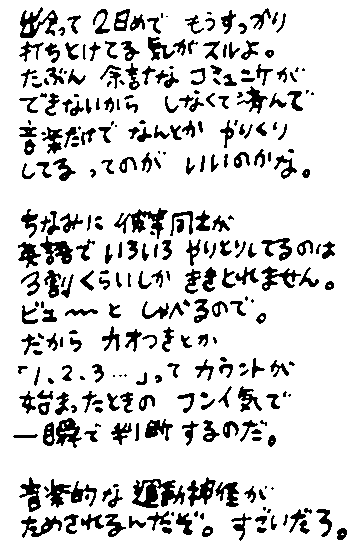 出会って 2日めで もうすっかり
打ちとけてる 気がスルよ。
たぶん 余計な コミュニケが
できないから しなくて済んで
音楽だけで なんとか やりくり
してる ってのが いいのかな。
ちなみに 彼等同士が
英語で いろいろ やりとりしてるのは
3割くらいしか ききとれません。
ビュ〜〜と しゃべるので。
だから カオつきとか
「1、2、3…」って カウントが
始まったときの フンイ気で
一瞬で 判断 するのだ。
音楽的な 運動神経が
ためされるんだぞ。すごいだろ。